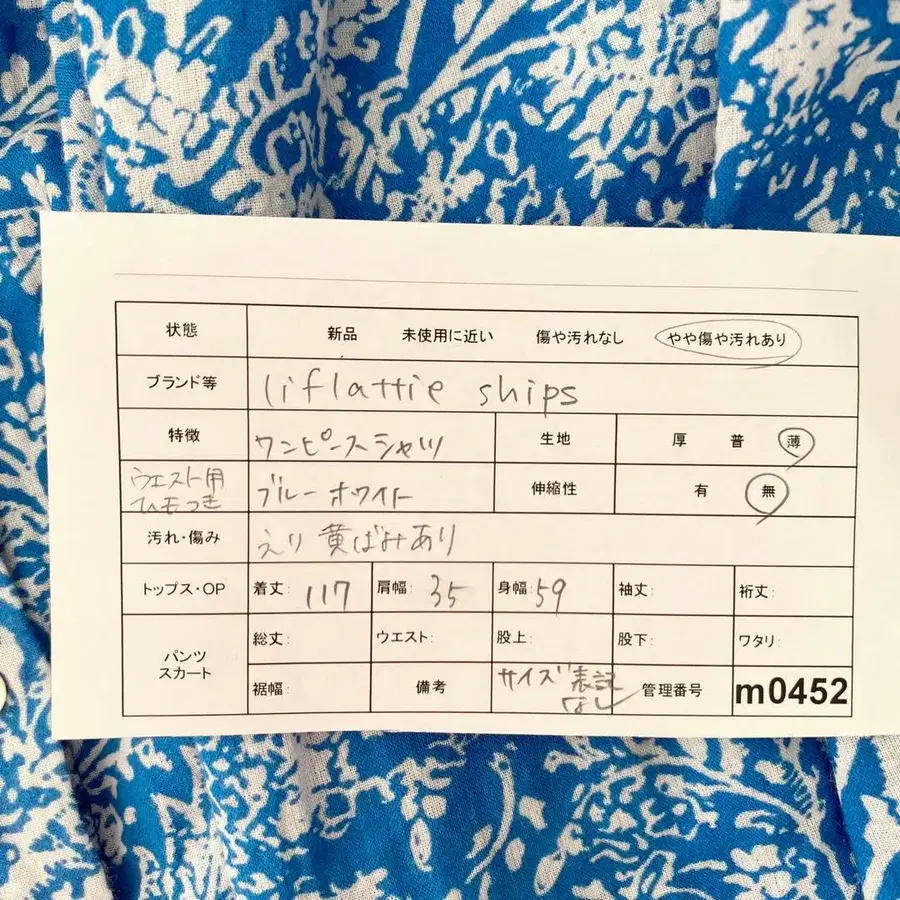 状態 新品 未使用に近い 傷や汚れなし やや傷や汚れあり
ブランド等 liflattie ships
特徴 ワンピースシャツ 生地 厚 普 薄
ウエスト用
ひもつき ブルー ホワイト 伸縮性 有 無
汚れ・傷み えり 黄ばみあり
トップス・OP 着丈: 117 肩幅: 35 身幅: 59 袖丈: 裄丈:
パンツ
スカート 総丈: ウエスト: 股上: 股下: ワタリ:
裾幅: 備考 サイズ表記
なし 管理番号 m0452